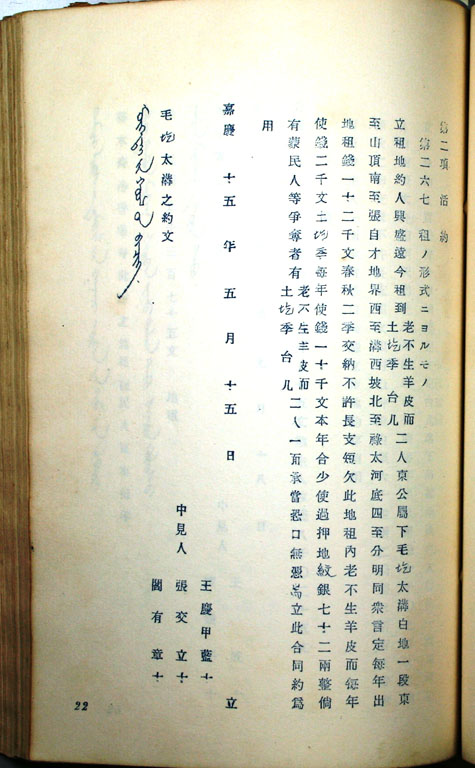 第二項 活約
第二六七 租ノ形式ニヨルモノ
立租地約人興盛遠今租到老不生羊皮而土圪季台儿二人東公局下毛圪太溝白地一段東
至山頂南至張自才地界西至溝西坡北至祿太河底四至分明同衆言定每年出
地租錢一十二千文春秋二季交納不許長支短欠此地租內老不生羊皮而每年
使錢二千文土圪季每年使錢一十千文本年合少使過押地紋銀七十二兩整倘
有蒙民人等爭奪者有老不生羊皮而土圪季台儿二人一面承當恐口無憑立此合同約爲
用
嘉慶十五年五月十五日 立
王慶甲藍十
中見人 張交立十
閻有章十
毛圪太溝之約文
22